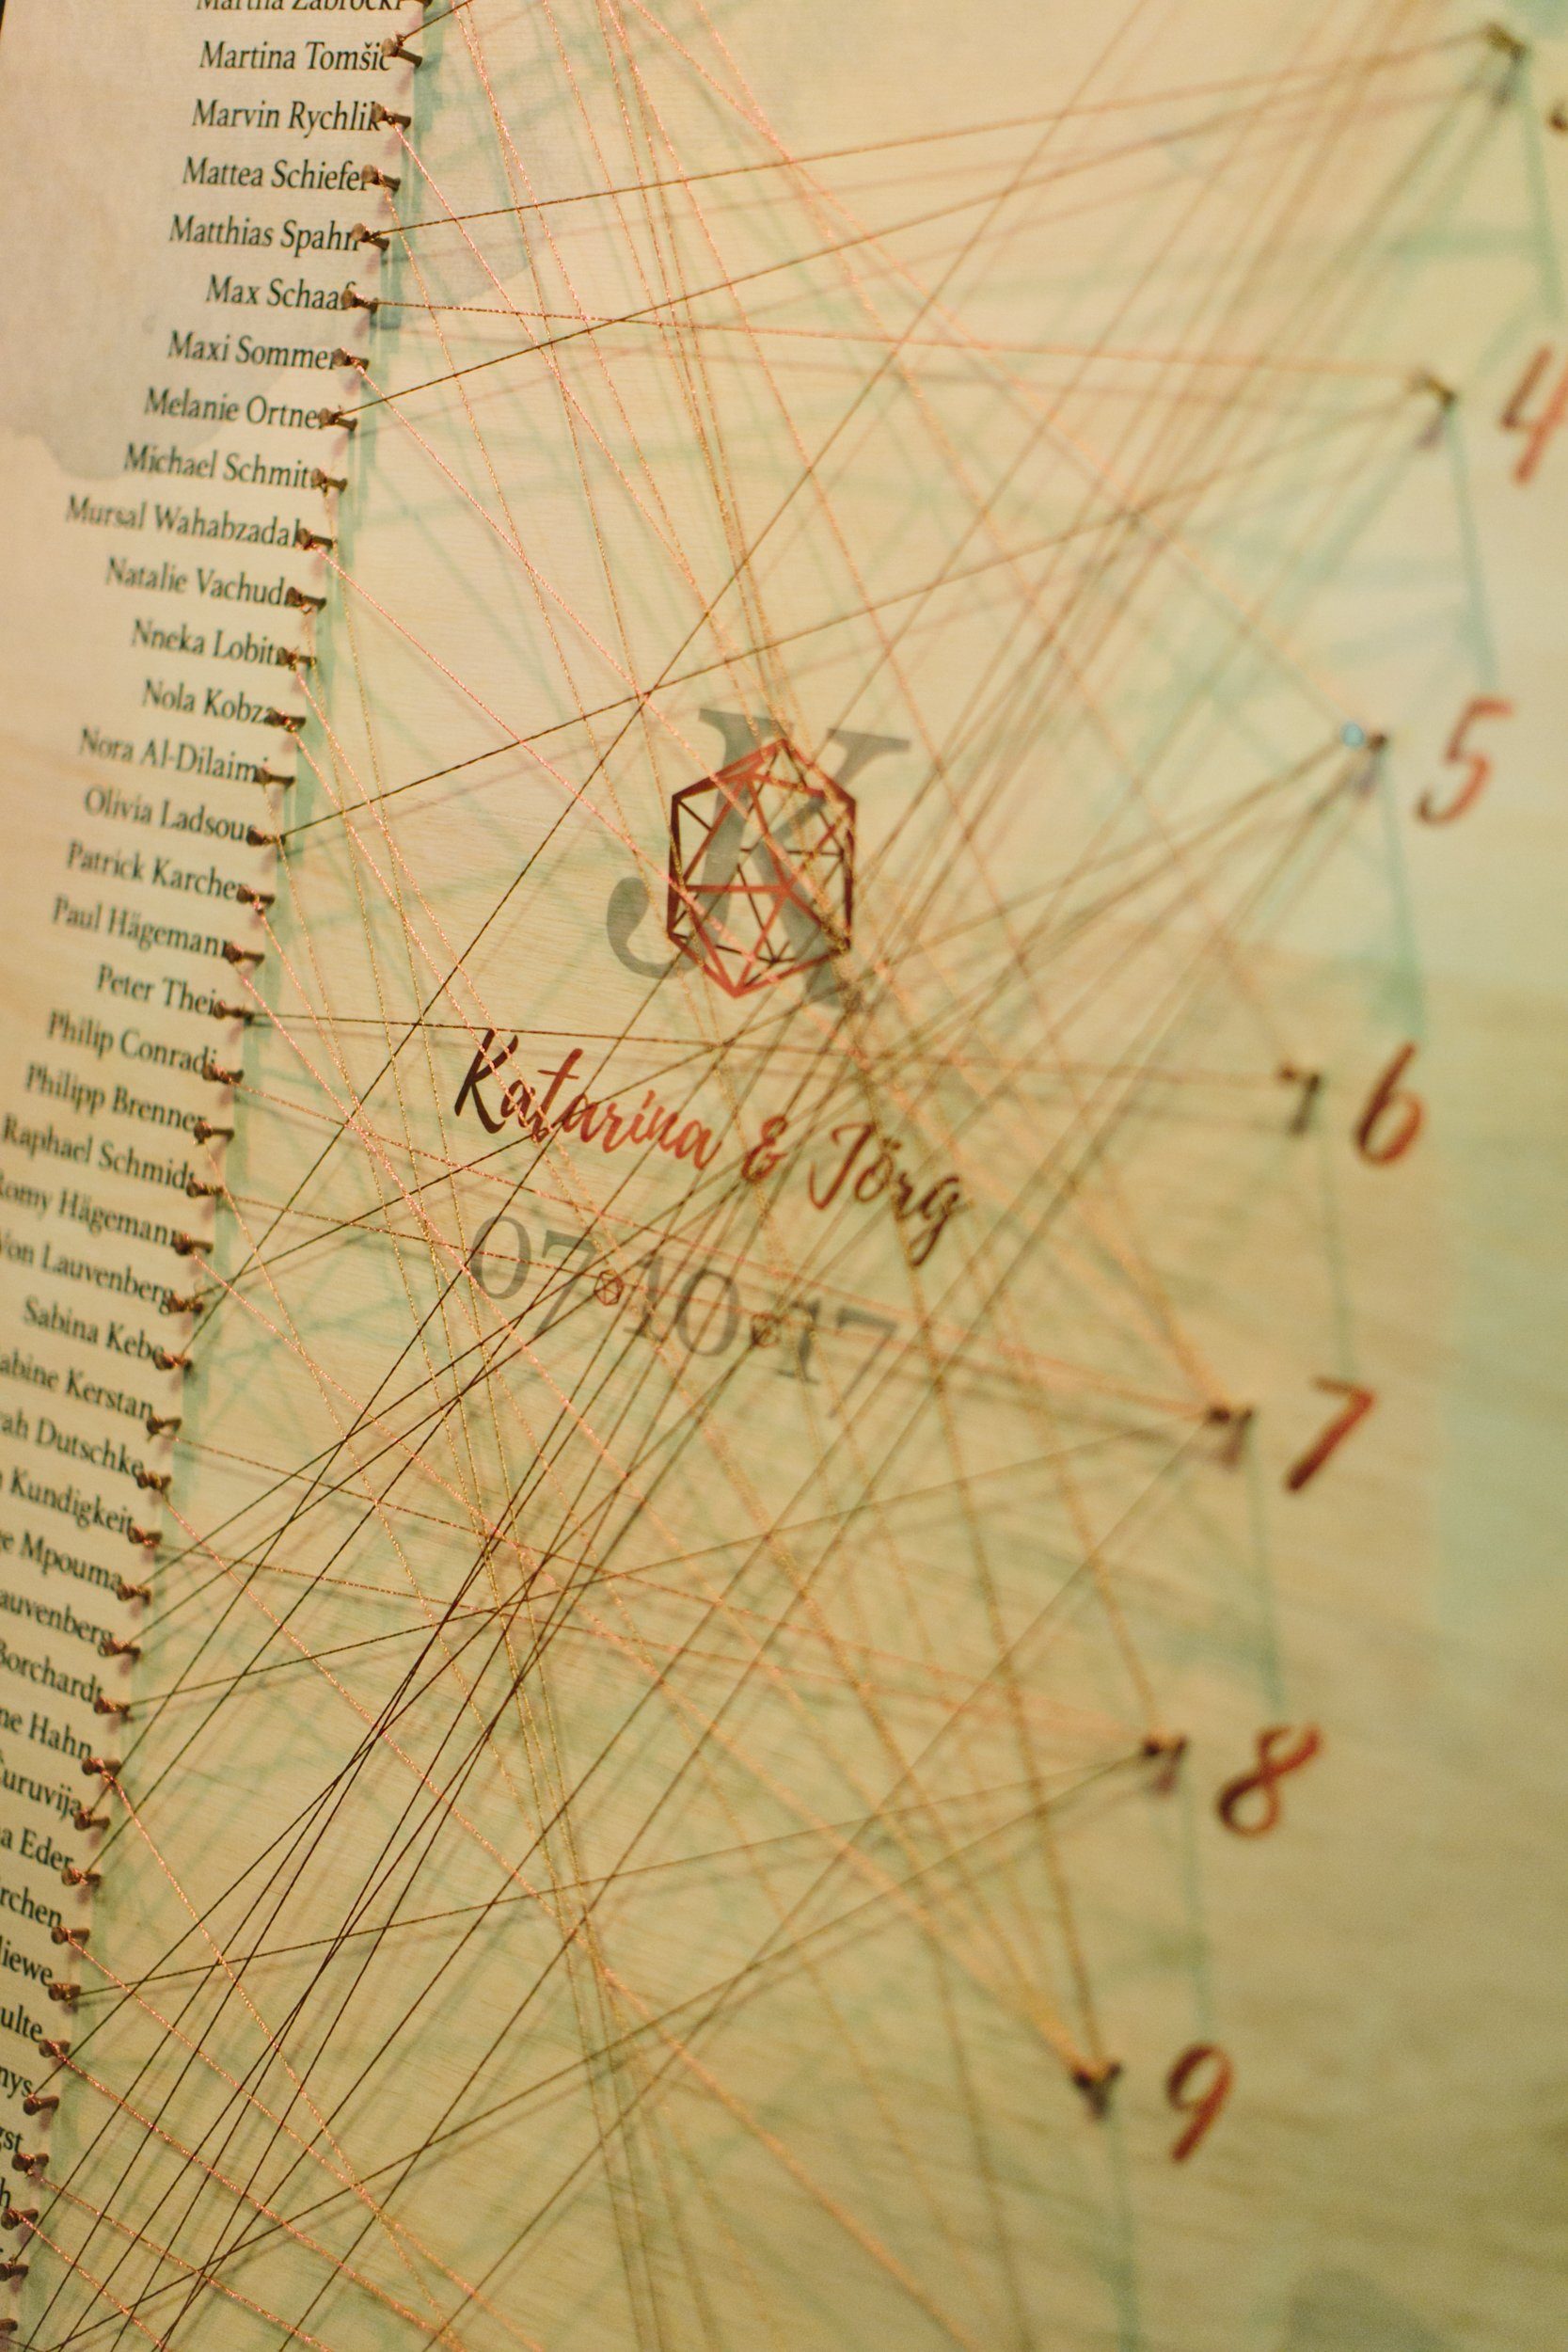 Martha Zabrocki
Martina Tomšic
Marvin Rychlik
Mattea Schiefer
Matthias Spahn
Max Schaaf
Maxi Sommer
Melanie Ortner
Michael Schmit
Mursal Wahabzadah
Natalie Vachuda
Nneka Lobits
Nola Kobza
Nora Al-Dilaimi
Olivia Ladsous
Patrick Karcher
Paul Hägemann
Peter Theis
Philip Conradi
Philipp Brenner
Raphael Schmidt
Romy Hägemann
Von Lauvenberg
Sabina Kebe
abine Kerstan
ah Dutschke
Kundigkeit
e Mpouma
auvenberg
Borchardt
ne Hahn
uruvija
a Eder
rchen
liewe
ulte
nys
gst
h
JK
Katarina & Jörg
07 10 17
4
5
6
7
8
9